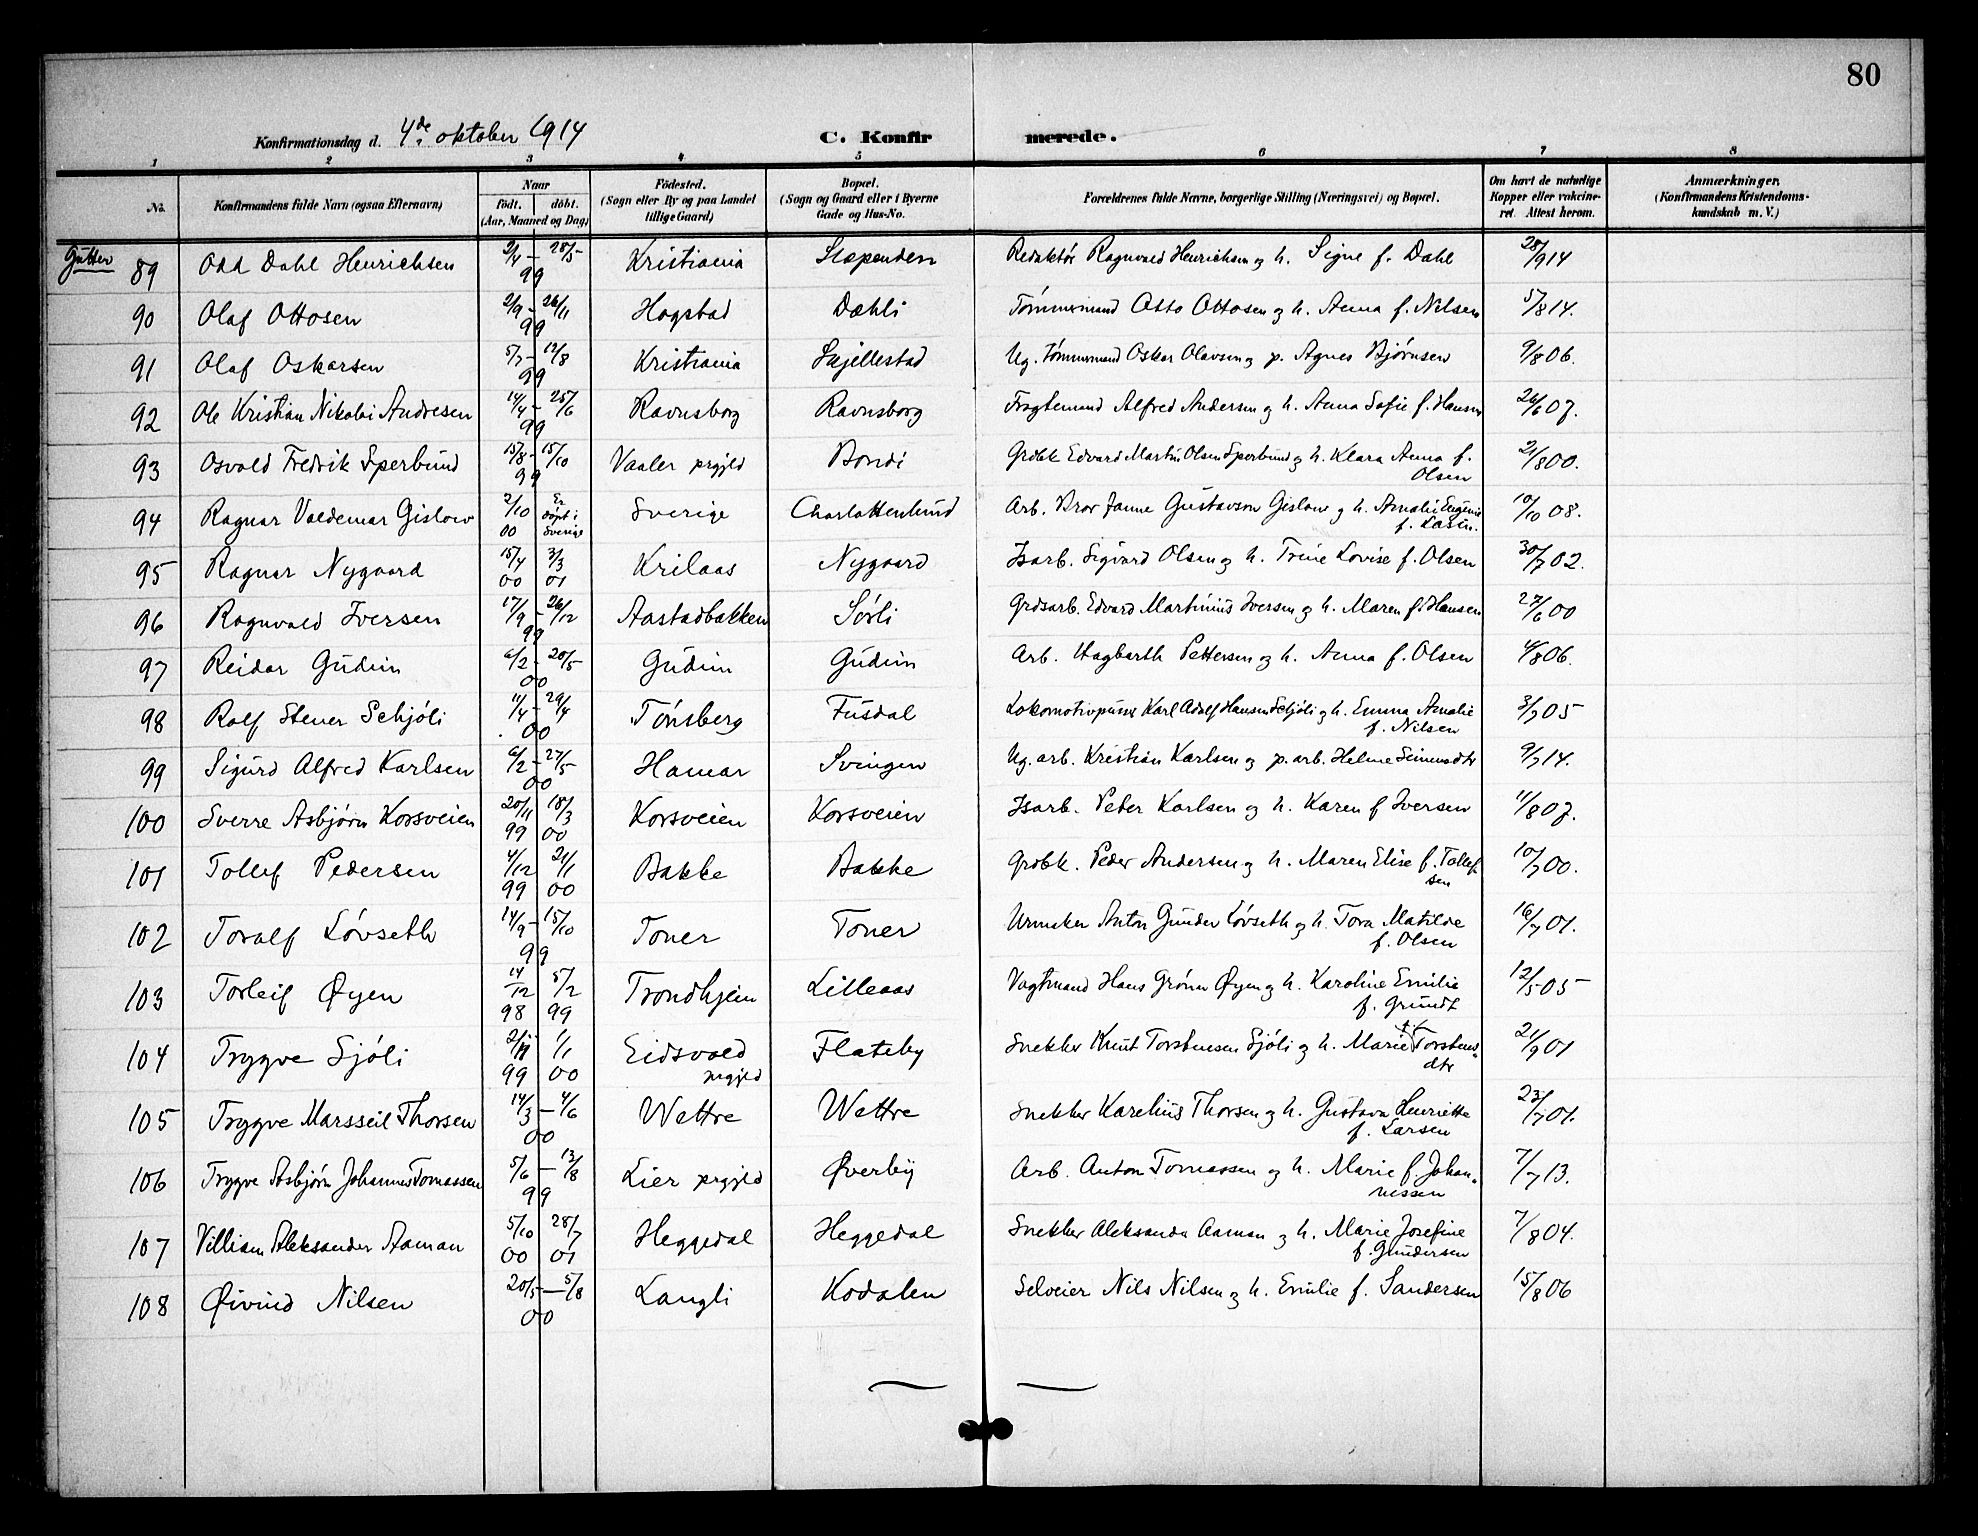 80
Konfirmationsdag d. 4de oktober 1914 C. Konfir merede.
1 2 3 4 5 6 7 8
No. Konfirmandens fulde Navn (ogsaa Efternavn) Naar født. døbt. (Aar, Maaned og Dag) Födested. (Sogn eller By og paa Landet tillige Gaard) Bopæl. (Sogn og Gaard eller i Byerne Gade og Hus-No. Forældrenes fulde Navne, borgerlige Stilling (Næringsvei) og Bopæl. Om havt de naturlige Kopper eller vakcineret. Attest herom. Anmærkninger. (Konfirmandens Kristendomskundskab m. V.)
Gutter
89 Odd Dahl Henrichsen 2/4 – 28/5 99 Kristiania Slependen Redaktör Ragnvald Henrichsen og h. Signe f. Dahl 28/9 14
90 Olaf Ottosen 2/9 – 26/11 99 Hogstad Dæhli Tømmermand Otto Ottosen og h. Anna f. Nilsen 5/8 14.
91 Olaf Oskarsen 5/7 – 12/8 99 Kristiania Skjellestad Ug. Tømmermand Oskar Olavsen og p. Agnes Bjørnsen 9/8 06.
92 Ole Kristian Nikolai Andresen 14/4 – 25/6 99 Ravnsborg Ravnsborg Fragtemand Alfred Andersen og h. Anna Sofie f. Hansen 26/6 07.
93 Osvald Fredrik Sperbund 15/8 – 15/10 99 Vaaler prgjld Bondi Grdbk Edvard Martin Olsen Sperbund og h. Klara Anna f. Olsen 21/8 00.
94 Ragnar Valdemar Gislow 2/10 00 Er döpt i Sverige Sverige Charlottenlund Arb. Bror Janne Gustavson Gislow og h. Amalie Eugenie f. 10/10 08.
95 Ragnar Nygaard 15/4 00 3/3 01 Krilaas Nygaard Isarb. Sigvard Olsen og h. Trine Lovise f. Olsen 30/7 02.
96 Ragnvald Iversen 17/9 – 26/12 99 Aastadbakken Sörli Grdsarb. Edvard Martinius Iversen og h. Maren f. Hansen 27/6 00
97 Reidar Gudim 6/2 – 20/5 00 Gudim Gudim Arb. Hagbarth Pettersen og h. Anna f. Olsen 4/8 06.
98 Rolf Stener Schjöli 11/4 – 29/4 00 Tönsberg Fusdal Lokomotivpusser Karl Adolf Hansen Schjöli og h. Emma Amalie f. Nilsen 3/7 05
99 Sigurd Alfred Karlsen 6/2 – 27/5 00 Hamar Svingen Ug. arb. Kristian Karlsen og p. arb. Helene 9/7 14.
100 Sverre Asbjørn Korsveien 20/11 99 18/3 00 Korsveien Korsveien Isarb. Peter Karlsen og h. Karen f Iversen 11/8 07.
101 Tollef Pedersen 4/12 99 21/1 00 Bakke Bakke Grdbk. Peder Andersen og h. Maren Elise f. Tollefsen 10/7 00.
102 Toralf Lövseth 14/9 – 15/10 99 Toner Toner Urmaker Anton Gunder Lövseth og h. Tora Matilde f. Olsen 16/7 01.
103 Torleif Øyen 14/12 98 5/2 99 Trondhjem Lilleaas Vagtmand Hans Grönn Øyen og h. Karoline Emilie f. Grundt 12/5 05
104 Trygve Sjöli 2/11 99 1/1 00 Eidsvold prgjld Flateby Snekker Knut Torstensen Sjöli og h. Marie Torstensdtr 21/9 01
105 Trygve Marsseil Thorsen 14/3 – 4/6 00 Wettre Wettre Snekker Karelius Thorsen og h. Gustava Henriette f. Larsen 23/7 01.
106 Trygve Asbjörn Johannes Tomassen 5/6 – 13/8 99 Lier prgjld Øverby Arb. Anton Tomassen og h. Marie f. Johannessen 7/7 13.
107 Villiam Aleksander Aaman 5/10 00 28/7 01 Heggedal Heggedal Snekker Aleksander Aaman og h. Marie Josefine f. Gundersen 7/8 04.
108 Øivind Nilsen 20/5 – 5/8 00 Langli Kodalen Selveier Nils Nilsen og h. Emilie f. Sandersen 15/8 06